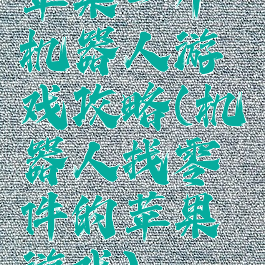 苹果
机器人游
戏攻略(机
器人找零
件的苹果
游戏)